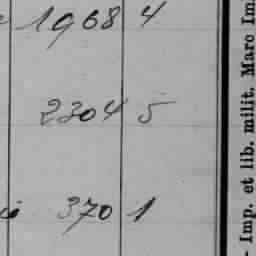 1968 4
2304 5
370 1
- Imp. et lib. milit. Marc Im